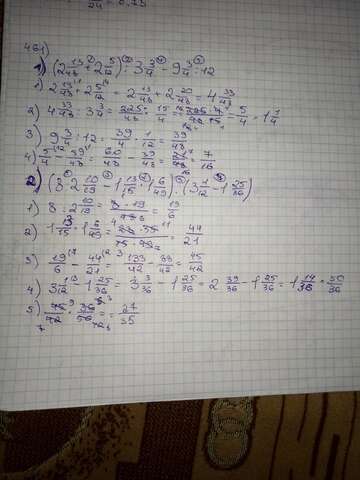 461)
1) (2 13/48 + 2 5/12) : 3 3/4 - 9 3/4 : 12
1) 2 13/48 + 2 5/12 = 2 13/48 + 2 20/48 = 4 33/48
2) 4 33/48 : 3 3/4 = 225/48 : 15/4 = 5/4 = 1 1/4
3) 9 3/4 : 12 = 39/4 · 1/12 = 39/48
4) 5/4 - 39/48 = 60/48 - 39/48 = 21/48 = 7/16
2) (8 : 2 10/19 - 1 13/15 · 1 6/49) · (3 1/12 - 1 25/36)
1) 8 : 2 10/19 = 8 · 19/48 = 19/6
2) 1 13/15 · 1 6/49 = 28 · 55/15 · 49 = 44/21
3) 19/6 - 44/21 = 133/42 - 88/42 = 45/42
4) 3 1/12 - 1 25/36 = 3 3/36 - 1 25/36 = 2 39/36 - 1 25/36 = 1 14/36 = 50/36